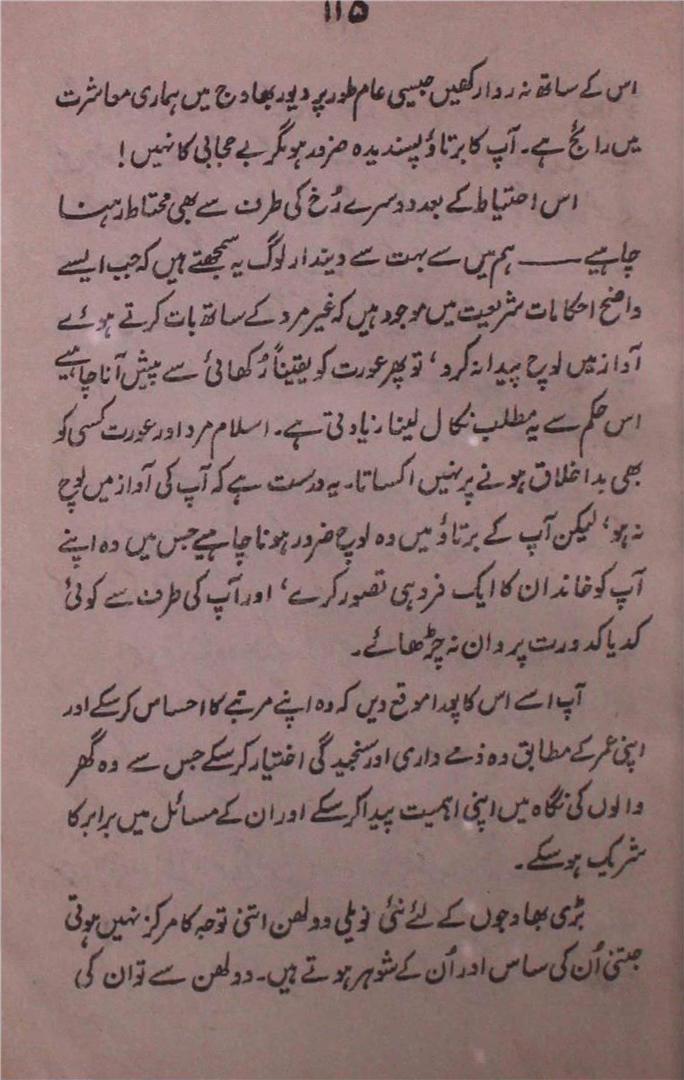 ۱۱۵
اس کے ساتھ نہ روا رکھیں جیسی عام طور پر دیور بھاوج میں ہماری معاشرت
میں رائج ہے۔ آپ کا برتاؤ پسندیدہ ضرور ہو مگر بے حجابی کا نہیں!
اس احتیاط کے بعد دوسرے رُخ کی طرف سے بھی محتاط رہنا
چاہیے —— ہم میں سے بہت سے دیندار لوگ یہ سمجھتے ہیں کہ جب ایسے
واضح احکامات شریعت میں موجود ہیں کہ غیر مرد کے ساتھ بات کرتے ہوئے
آواز میں لوچ پیدا نہ کرو، تو پھر عورت کو یقیناً رُکھائی سے پیش آنا چاہیے
اس حکم سے یہ مطلب نکال لینا زیادتی ہے۔ اسلام مرد اور عورت کسی کو
بھی بداخلاق ہونے پر نہیں اکساتا۔ یہ درست ہے کہ آپ کی آواز میں لوچ
نہ ہو، لیکن آپ کے برتاؤ میں وہ لوچ ضرور ہونا چاہیے جس میں وہ اپنے
آپ کو خاندان کا ایک فرد ہی تصور کرے، اور آپ کی طرف سے کوئی
کد یا کدورت پروان نہ چڑھائے۔
آپ اسے اس کا پورا موقع دیں کہ وہ اپنے مرتبے کا احساس کر سکے اور
اپنی عمر کے مطابق وہ ذمے داری اور سنجیدگی اختیار کر سکے جس سے وہ گھر
والوں کی نگاہ میں اپنی اہمیت پیدا کر سکے اور ان کے مسائل میں برابر کا
شریک ہو سکے۔
بڑی بھاوجوں کے لئے نئی نویلی دولھن اتنی توجہ کا مرکز نہیں ہوتی
جتنی اُن کی ساس اور اُن کے شوہر ہوتے ہیں۔ دولھن سے تو ان کی